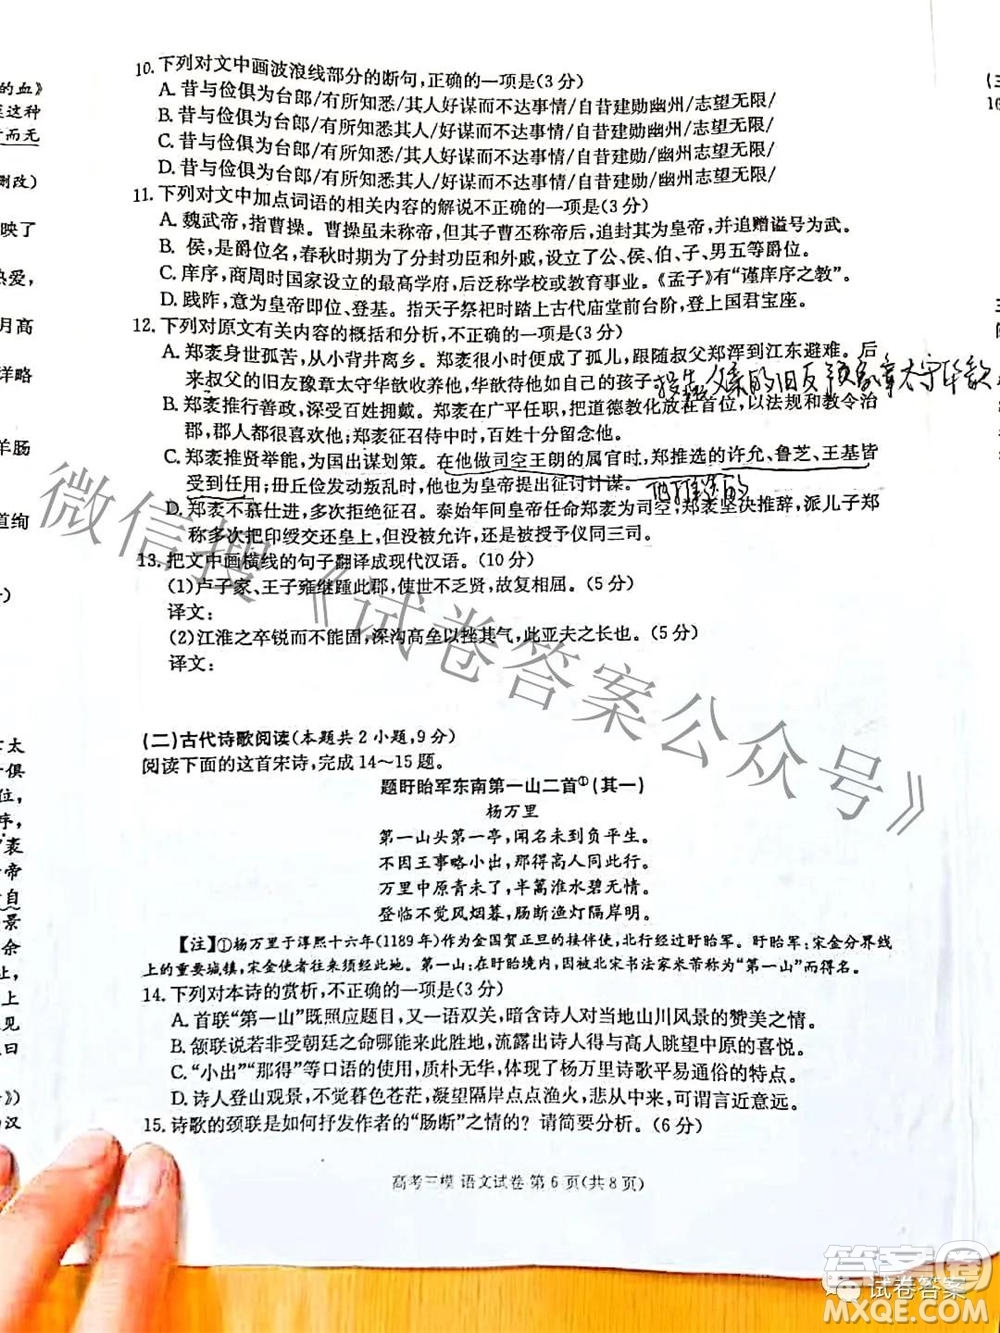 10. 下列对文中画波浪线部分的断句,正确的一项是(3分)
A. 昔与俭俱为台郎/有所知悉/其人好谋而不达事情/自昔建勋幽州/志望无限/
B. 昔与俭俱为台郎/有所知悉其人/好谋而不达事情/自昔建勋/幽州志望无限/
C. 昔与俭俱为台郎/有所知悉/其人好谋而不达事情/自昔建勋/幽州志望无限/
D. 昔与俭俱为台郎/有所知悉其人/好谋而不达事情/自昔建勋幽州/志望无限/
11. 下列对文中加点词语的相关内容的解说不正确的一项是(3分)
A. 魏武帝,指曹操。曹操虽未称帝,但其子曹丕称帝后,追封其为皇帝,并追赠谥号为武。
B. 侯,是爵位名,春秋时期为了分封功臣和外戚,设立了公、侯、伯、子、男五等爵位。
C. 庠序,商周时国家设立的最高学府,后泛称学校或教育事业。《孟子》有“谨庠序之教”。
D. 践阼,意为皇帝即位、登基。指天子祭祀时踏上古代庙堂前台阶,登上国君宝座。
12. 下列对原文有关内容的概括和分析,不正确的一项是(3分)
A. 郑袤身世孤苦,从小背井离乡。郑袤很小时便成了孤儿,跟随叔父郑浑到江东避难。后
来叔父的旧友豫章太守华歆收养他,华歆待他如自己的孩子
父亲的旧友豫章太守华歆
B. 郑袤推行善政,深受百姓拥戴。郑袤在广平任职时,把道德教化放在首位,以法规和教令治
郡,郡人都很喜欢他;郑袤征召待中时,百姓十分留念他。
C. 郑袤推贤举能,为国出谋划策。在他做司空王朗的属官时,郑推选的许允、鲁芝、王基皆
受到任用;毌丘俭发动叛乱时,他为皇帝提出征讨计谋。
他推选的
D. 郑袤不慕仕进,多次拒绝征召。泰始年间皇帝任命郑袤为司空;郑袤坚决推辞,派儿子郑
称多次把印绶交还,但没被允许,还是被授予仪同三司。
13. 把文中画横线的句子翻译成现代汉语。(10分)
(1)卢子家、王子雍继踵此郡,使世不乏贤,故复相屈。(5分)
译文:
(2)江淮之卒锐而不能固,深沟高垒以挫其气,此亚夫之长也。(5分)
译文:
(二)古代诗歌阅读(本题共2小题,9分)
阅读下面的这首宋诗,完成14~15题。
题盱眙军东南第一山二首①(其一)
杨万里
第一山头第一亭,闻名未到负平生。
不因王事略小出,那得高人同此行。
万里中原青未了,半篙淮水碧无情。
登临不觉风烟暮,肠断渔灯隔岸明。
【注】①杨万里于淳熙十六年(1189年)作为金国贺正旦的接伴使,北行经过盱眙军。盱眙军:宋金分界线
上的重要城镇,宋金使者往来须经此地。第一山:在盱眙境内,因被北宋书法家米芾称为“第一山”而得名。
14. 下列对本诗的赏析,不正确的一项是(3分)
A. 首联“第一山”既照应题目,又一语双关,暗含诗人对当地山川风景的赞美之情。
B. 颔联叙述因接受朝廷的命令而来此胜地,流露出诗人得以与高人眺望中原的喜悦。
C. “小出”“那得”等口语的使用,质朴无华,体现了杨万里诗歌平易通俗的特点。
D. 诗人登山观景,不觉暮色苍茫,凝望隔岸点点渔火,悲从中来,可谓言近意远。
15. 诗歌的颈联是如何抒发作者的“肠断”之情的?请简要分析。(6分)
高考三模 语文试卷 第6页(共8页)
的血》
至这种
而无
删改)
映了
热爱,
月高
详略
羊肠
道绚
太
俱
位,
序,
袤
帝
自
景
余
上
见
曰
》)
汉
(三
16
微信搜《试卷答案公众号》
试卷答案
答案圈
MXQE.COM